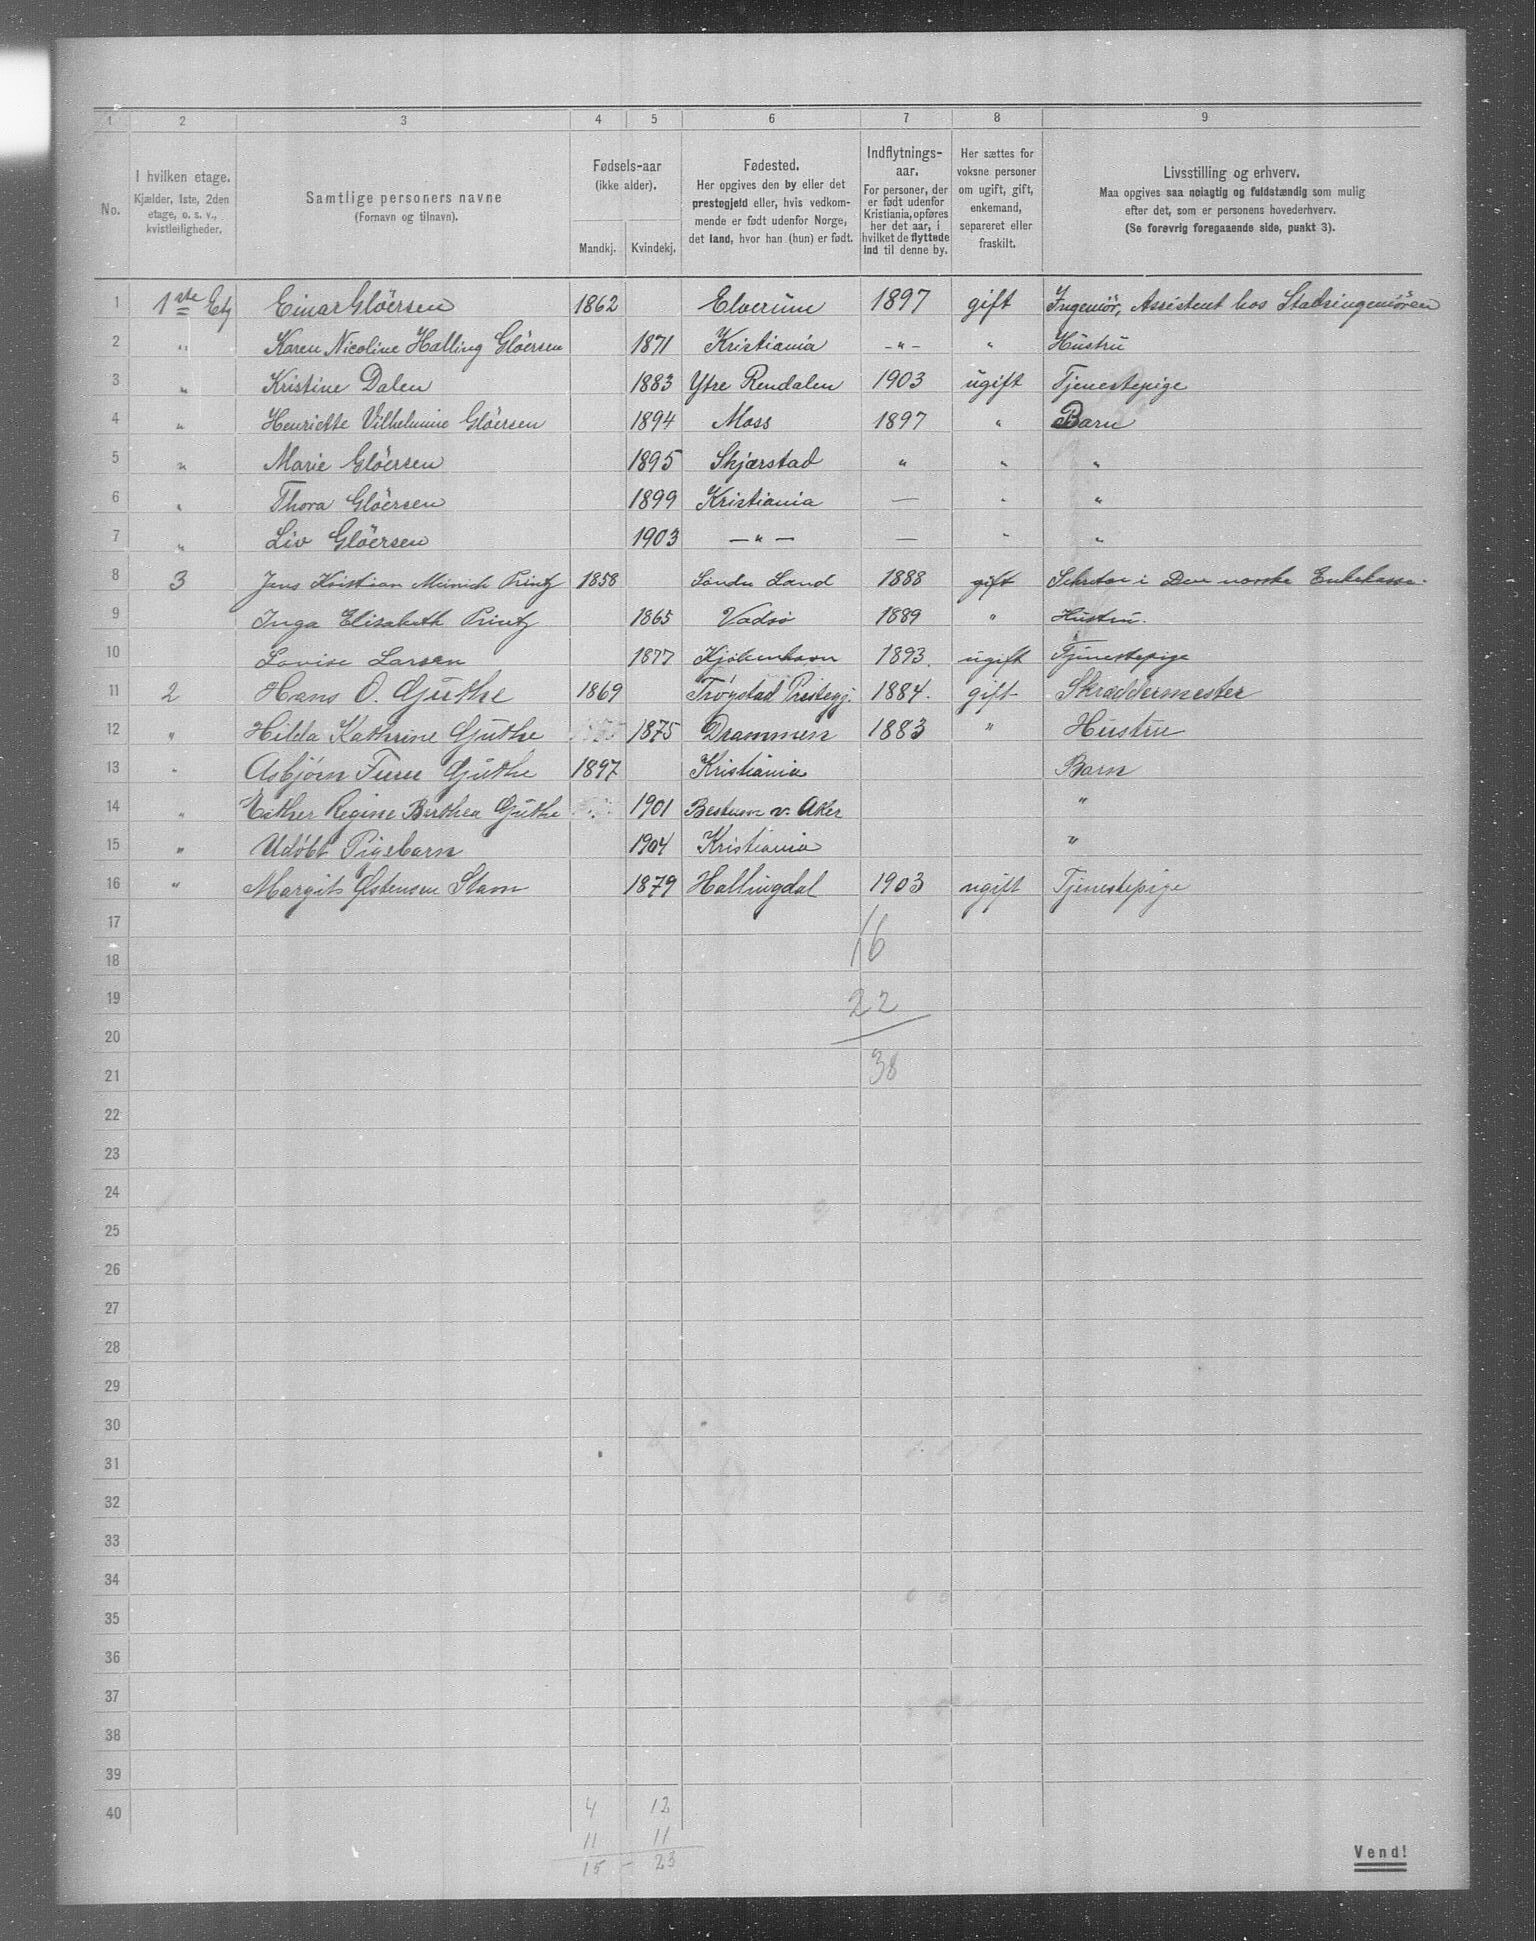 1 2 3 4 5 6 7 8 9
No.
I hvilken etage.
Kjælder, 1ste, 2den
etage, o. s. v.,
kvistleiligheder.
Samtlige personers navne
(Fornavn og tilnavn).
Fødsels-aar
(ikke alder).
Mandkj. Kvindekj.
Fødested.
Her opgives den by eller det
prestegjeld eller, hvis vedkom-
mende er født udenfor Norge,
det land, hvor han (hun) er født.
Indflytnings-
aar.
For personer, der
er født udenfor
Kristiania, opføres
her det aar, i
hvilket de flyttede
ind til denne by.
Her sættes for
voksne personer
om ugift, gift,
enkemand,
separeret eller
fraskilt.
Livsstilling og erhverv.
Maa opgives saa nøiagtig og fuldstændig som mulig
efter det, som er personens hovederhverv.
(Se forøvrig foregaaende side, punkt 3).
1 1ste Etg Einar Glöersen 1862 Elverum 1897 gift Ingeniör, Assistent hos Statsingeniören
2 " Karen Nicoline Halling Glöersen 1871 Kristiania -"- " Hustru
3 " Kristine Dalen 1883 Ytre Rendalen 1903 ugift Tjenestepige
4 " Henriette Vilhelmine Glöersen 1894 Moss 1897 " Barn
5 " Marie Glöersen 1895 Skjærstad " " "
6 " Thora Glöersen 1899 Kristiania — " "
7 " Liv Glöersen 1903 —"— — " "
8 3 Jens Kristian Munich Printz 1858 Søndre Land 1888 gift Sekretær i Den norske Enkekasse.
9 Inga Elisabeth Printz 1865 Vadsø 1889 " Hustru.
10 Lovise Larsen 1877 Kjøbenhavn 1893. ugift Tjenestepige
11 2 Hans O. Guthe 1869 Trøgstad Prestegj. 1884. gift Skræddermester
12 " Hilda Kathrine Guthe 1875 Drammen 1883 " Hustru
13 " Asbjørn Guthe 1897 Kristiania Barn
14 " Esther Regine Berthea Guthe 1901 Bestum v. Aker "
15 " Udøbt Pigebarn 1904 Kristiania "
16 " Margit Østensen Stam 1879 Hallingdal 1903 ugift Tjenestepige
17 16
18
19 22
20
21 38
22
23
24
25
26
27
28
29
30
31
32
33
34
35
36
37
38
39
40 4 12
11 11
15 - 23
Vend!